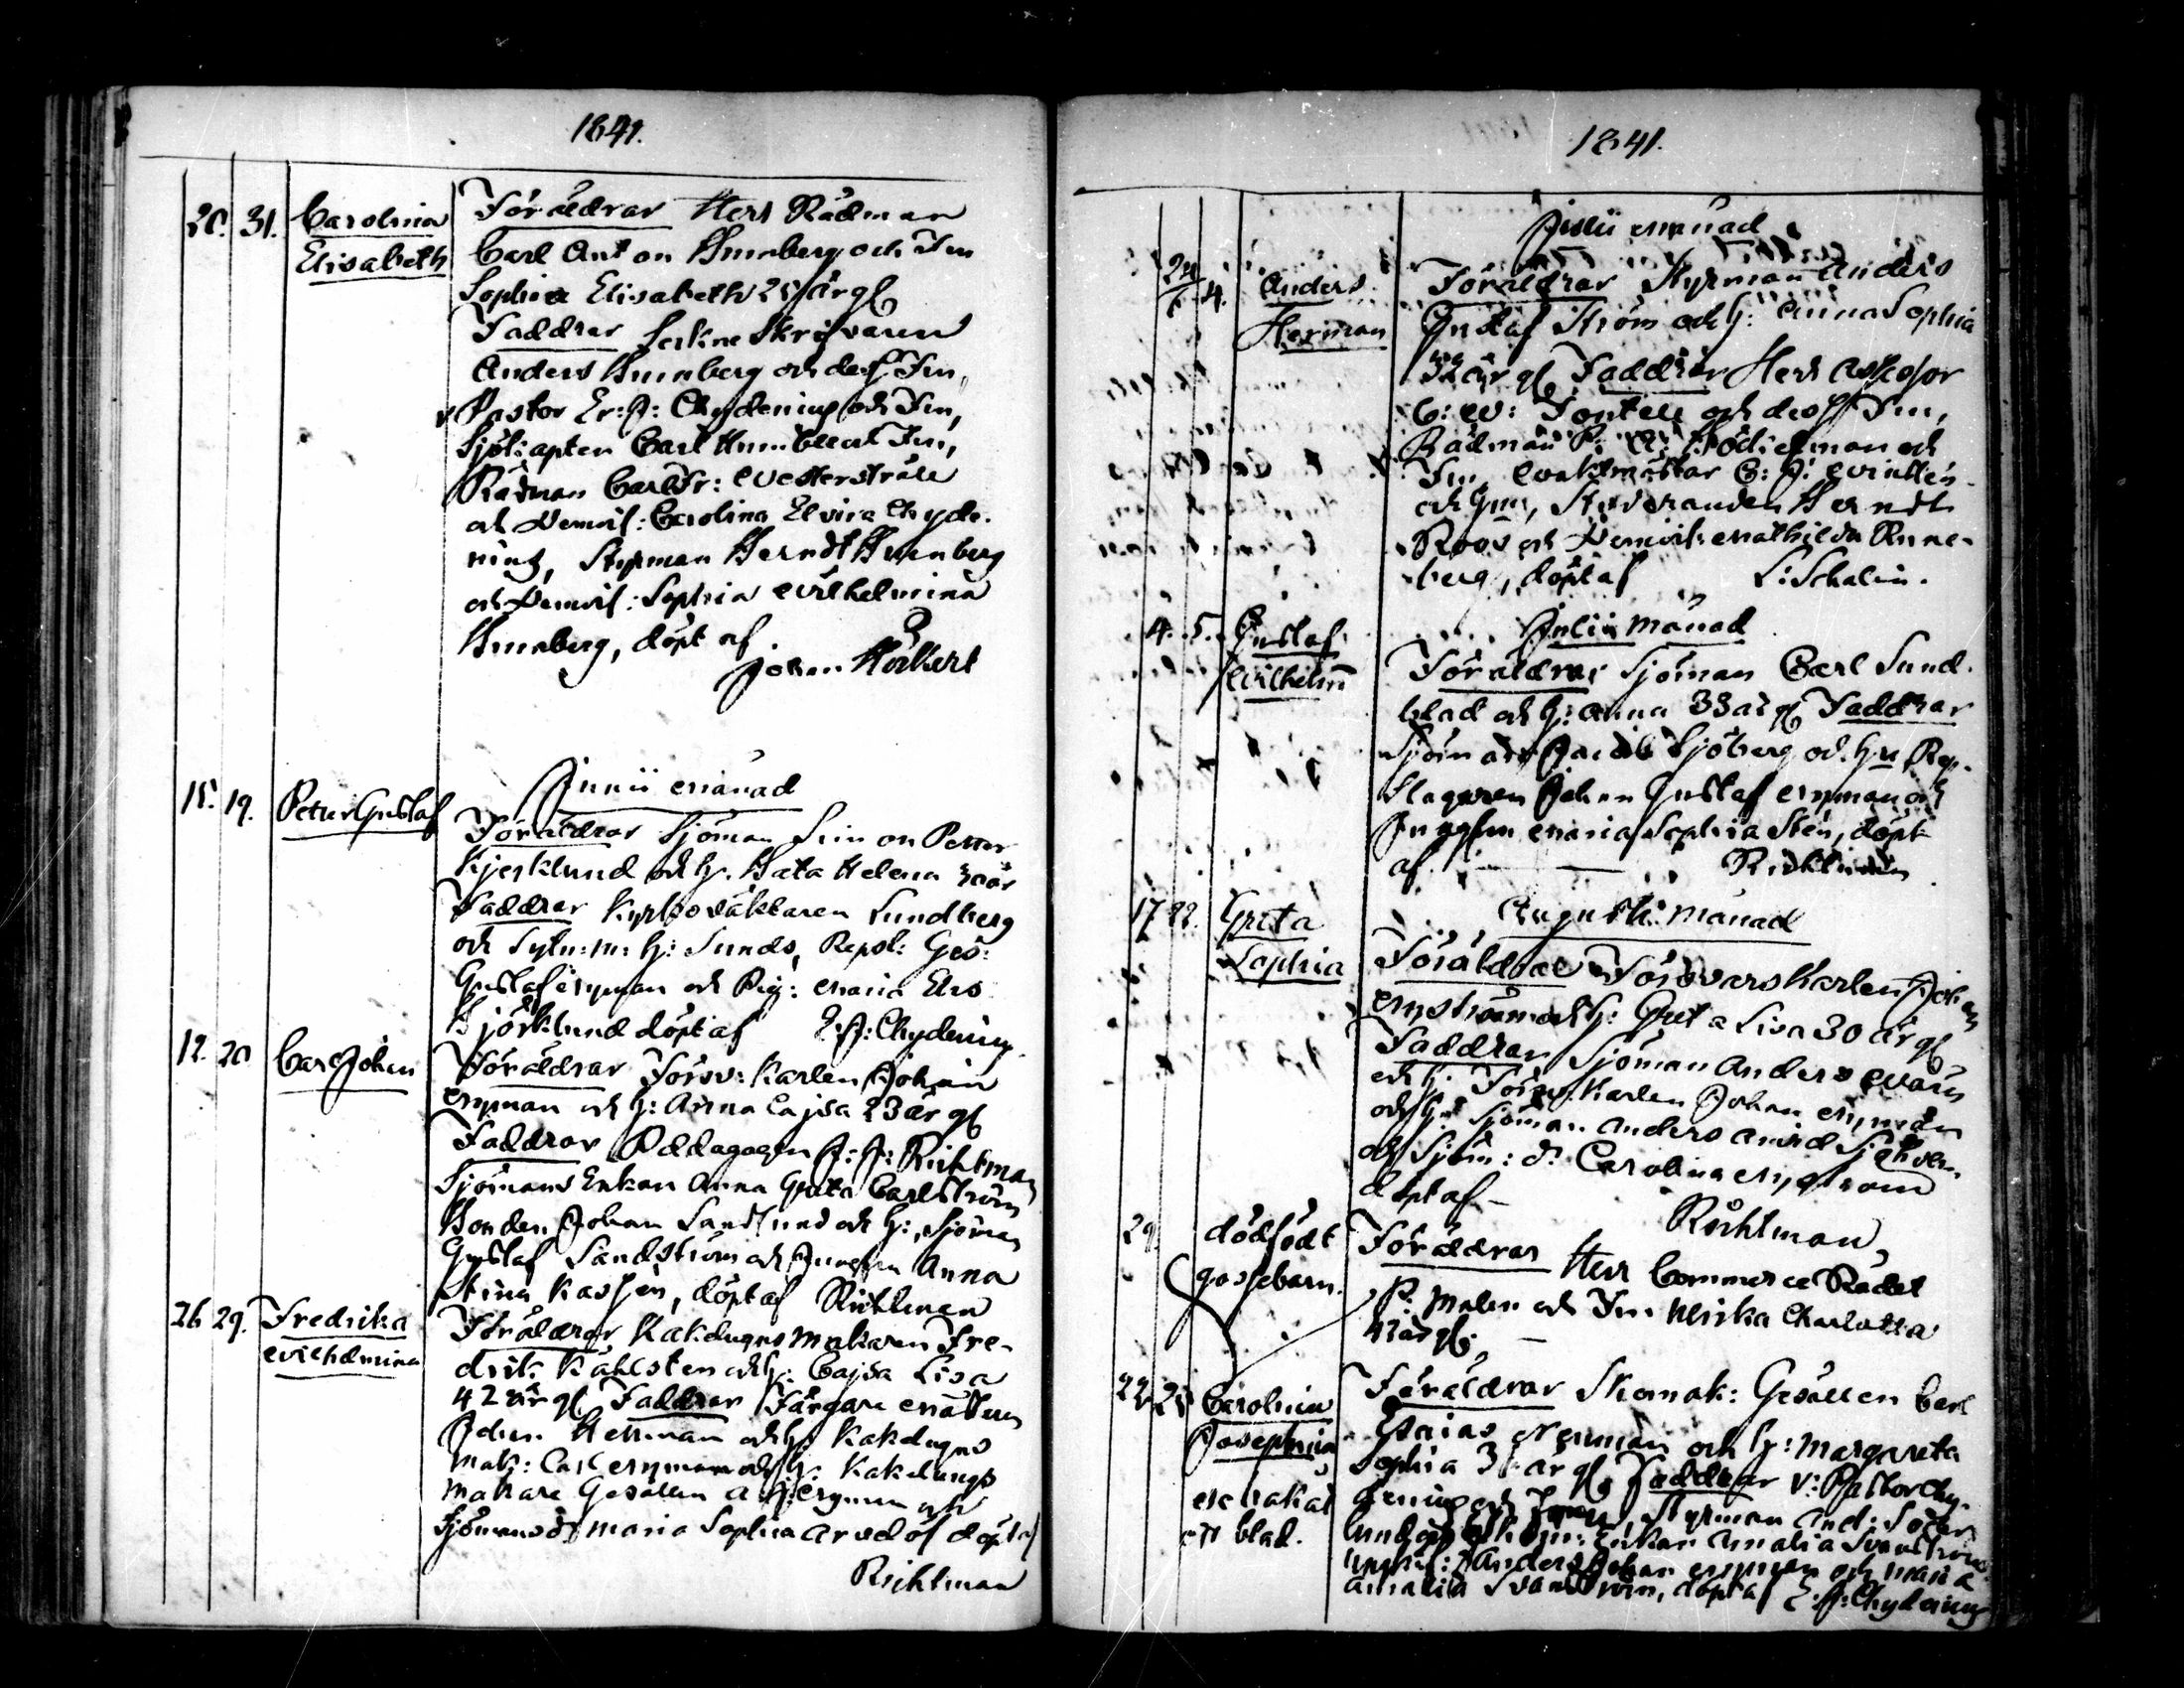 1841.
20. 31. Carolina Föräldrar Herr Rådman
Elisabeth Carl Anton Brunberg och Fru
Sophia Elisabeth 25 år gl
Faddrar Skrifvaren
Anders Brunberg och dess Fru,
v Pastor Er: J: Chydenius och Fru,
Sjökapten Carl Fru,
Rådman Carl Fr: Westerstråle
och Demois: Carolina Elvira Chyde-
nius, Styrman Berndt Brunberg
och Demois: Sophia Wilhelmina
Brunberg, döpt af
Johan Hörkert
Junii Månad
15. 19. Petter Gustaf Föräldrar Sjöman Simon Petter
Bjerklund och h. Beata Helena 30 år
Faddrar Kyrkoväktaren Lundberg
och h: Sunds, Repsl: Ges:
Gustaf Nyman och Pig: Maria Elis
Björklund döpt af E: J: Chydenius
12. 20 Carl Johan Föräldrar Försv: Karlen Johan
Nyman och h: Anna Cajsa 23 år gl
Faddrar Pedagogen J: J: Richtman
Sjömans Enkan Anna Greta Carlström
Bonden Johan Sandlund och h:, Sjöman
Gustaf Sandström och Jungfru Anna
Stina Kassen, döpt af Richtman
26 29. Fredrika Föräldrar Kakelugnsmakaren Fre-
Wilhelmina drik Kahlsten och h: Cajsa Lisa
42 år gl Faddrar Färgare Mästaren
Johan Hellman och h: Kakelugns
mak: Carl Nyman och h: Kakelungs
makare Gesällen A: J: Nyman och
Sjömansd: Maria Sophia Arvdof döpt af
Richtman
1841.
Junii Månad
24/6 4. Anders Föräldrar Styrman Anders
Herman Gustaf Ström och h: Anna Sophia
32 år gl Faddrar Herr Assessor
C: W: Fontell och dess Fru,
Rådman P: A: och
Fru, C: J:
och hu, Studeranden Berndt
Roos och Demois: Mathilda Rune-
berg, döpt af L: Schalin.
Julii Månad
4. 5. Gustaf Föräldrar Sjöman Carl Sund-
Wilhelm blad och h: Anna 33 år gl Faddrar
Sjöman Jacob Sjöberg och hu Rep-
slagaren Johan Gustaf Nyman och
Jungfrun Maria Sophia Sten, döpt
af Richtman
Augusti Månad
17 22. Greta Föräldrar Försvarskarlen Johan
Sophia Nyström och h: Greta Lisa 30 år gl
Faddrar Sjöman Anders
och h: Försv: Karlen Johan Nyman
och h: Sjöman Anders
och Sjöm: d: Carolina Nyström
döpt af
Richtman
29. dödfödt Föräldrar Herr Commerce Rådet
gossebarn. P: Malm och Fru Ulrika Charlotta
42 år gl:
22. 25 Carolina Föräldrar Skomak: Gesällen Carl
Josephina Esaias Nyman och h: Margareta
Sophia 3 år gl, Faddrar v: Pastor Chy-
denius och Frun, Styrman And: Söder
lund och Enkan Amalia Svanström
Anders Johan Nyman och Maria
Amalia Svanström, döpt af E: J: Chydenius
ett blad.